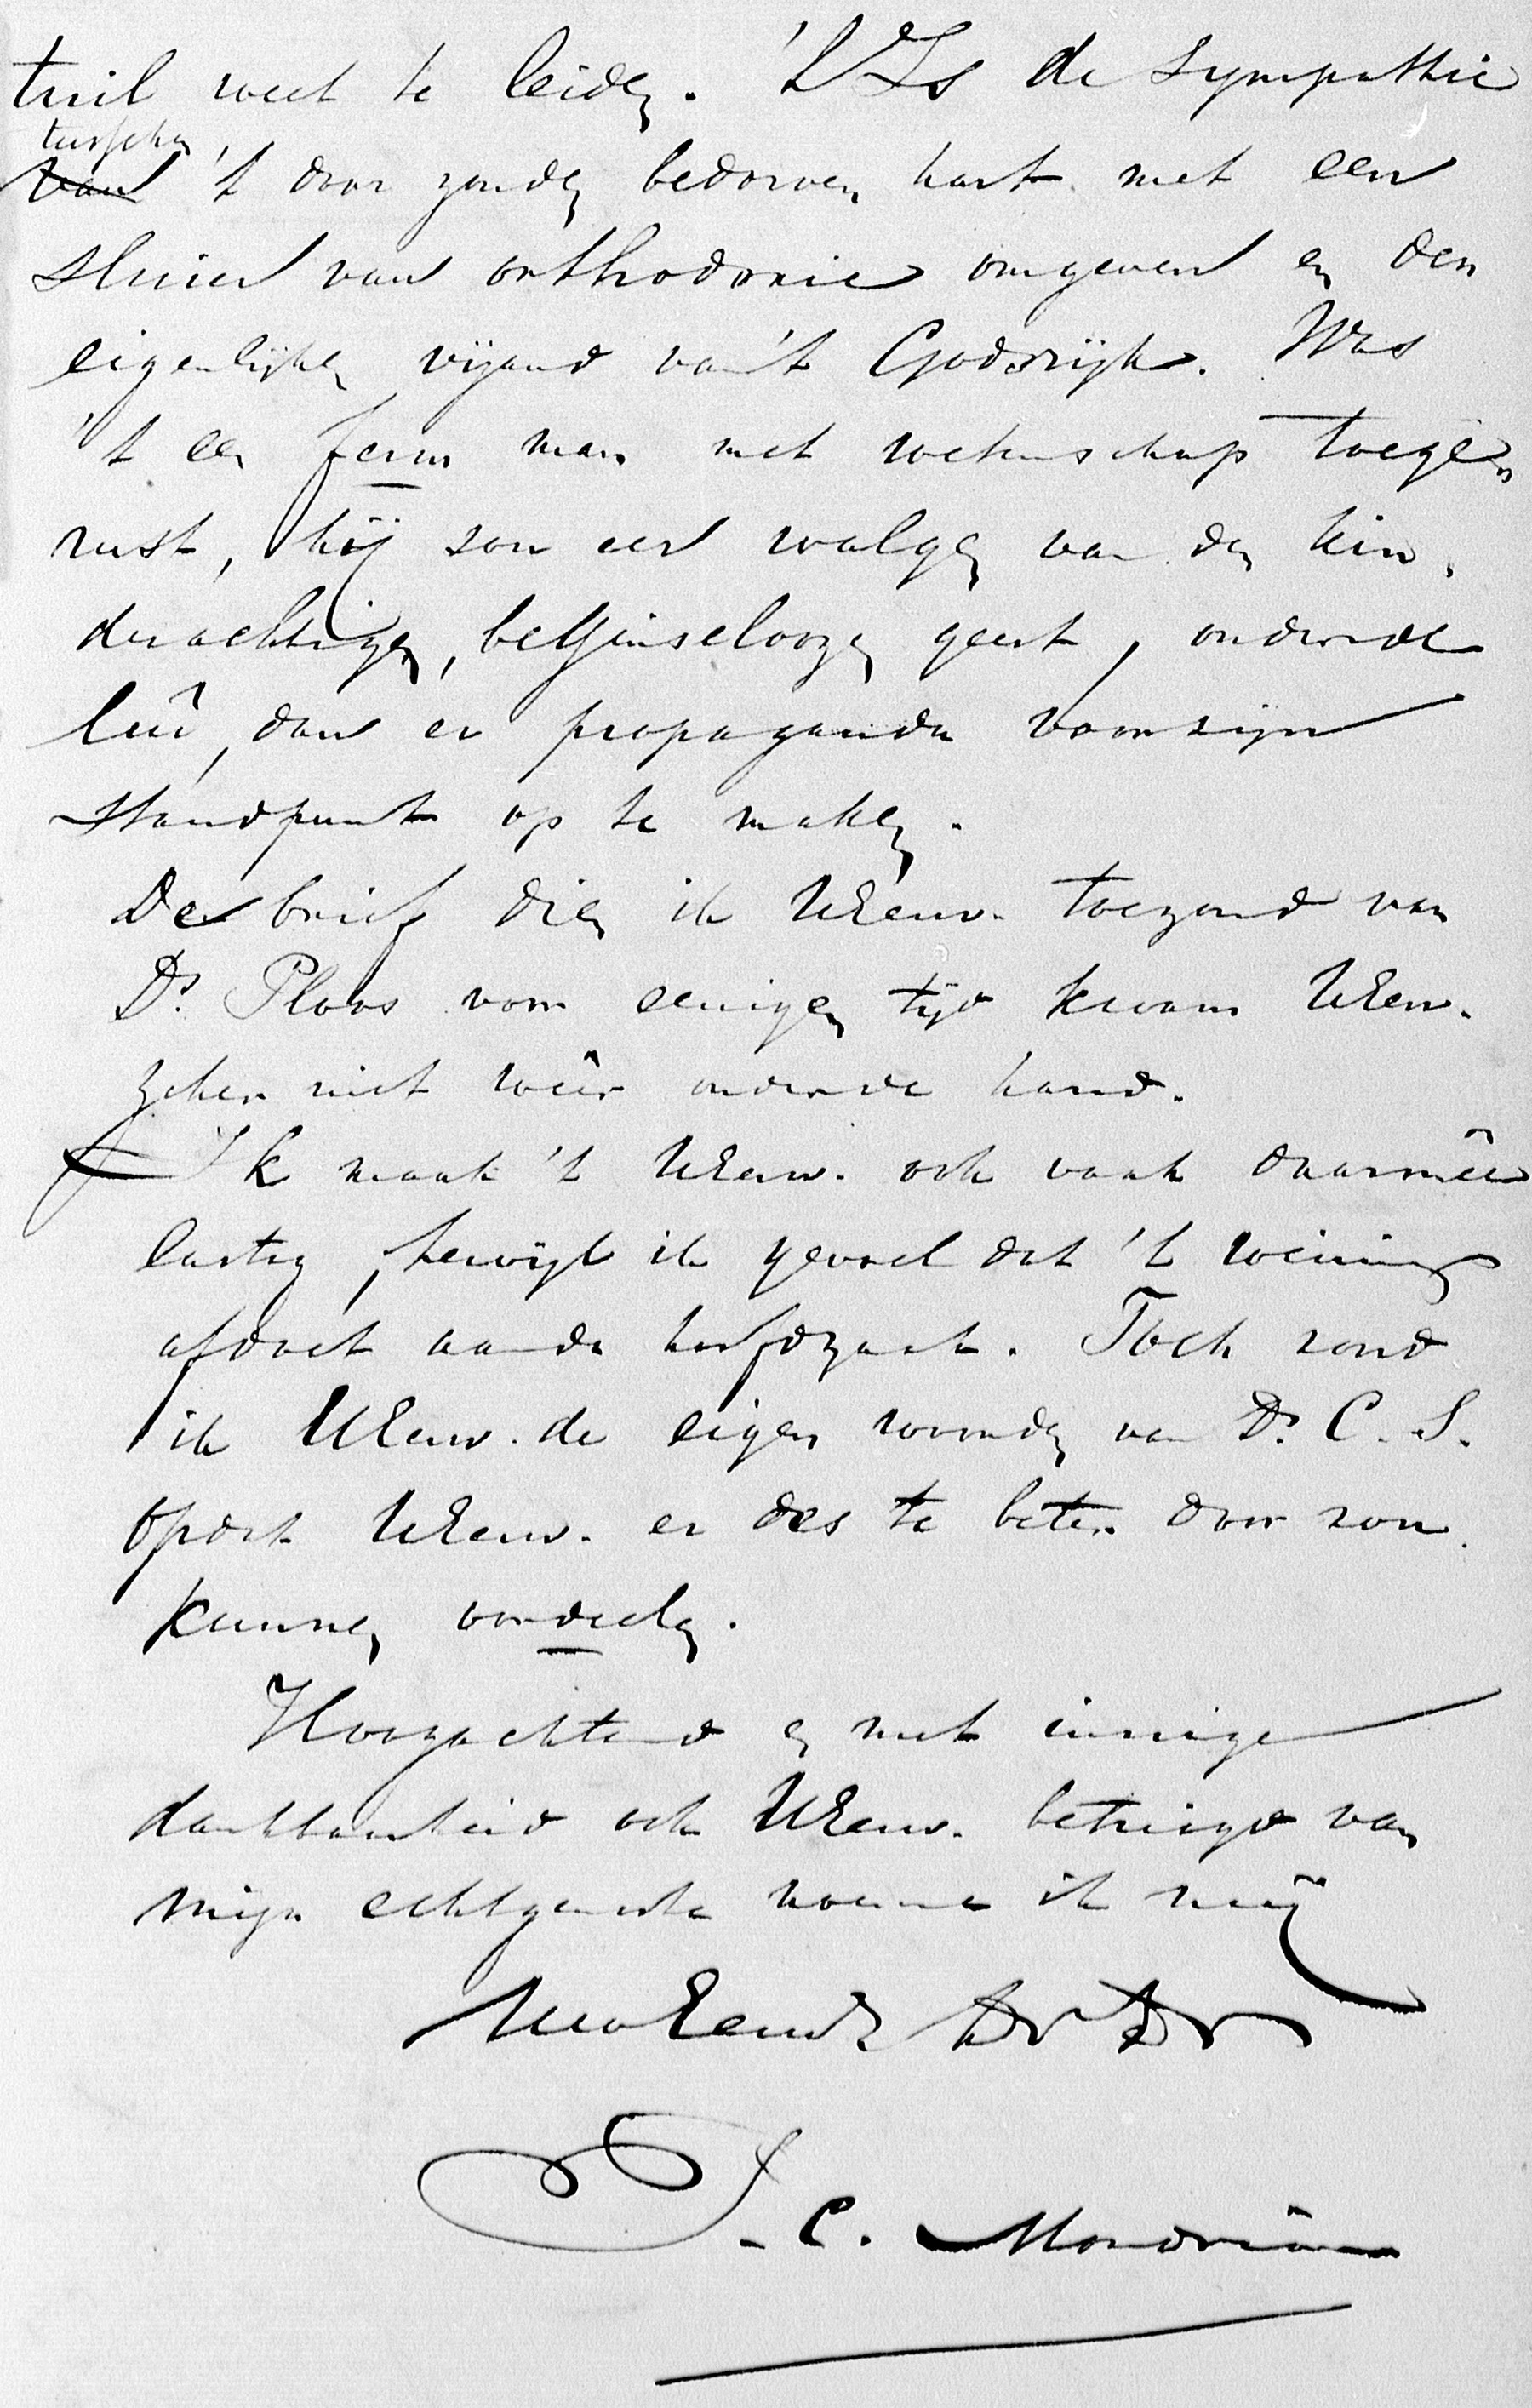 tuil weet te leiden. 't Is de sympathie
tusschen
van 't door zonden bedorven hart met een
sluier van orthodoxie omgeven en den
eigenlijken vijand van 't Godsrijk. Was
't een ferm man met wetenschap toege-
rust, hij zou eer walgen van den kin-
derachtigen, beginseloozen geest, onder de
lui, dan er propaganda voor zijn
standpunt op te maken.
De brief dien ik UEerw. toezond van
Ds. Ploos voor eenigen tijd kwam UEerw.
zeker niet weêr onder de hand.
Ik maak 't UEerw. ook vaak daarmeê
lastig, terwijl ik gevoel dat 't weinig
afdoet aan de hoofdzaak. Toch zond
ik UEerw. de eigen woorden van Ds. C. S.
opdat UEerw. er des te beter door zou
kunnen oordeelen.
Hoogachtend en met innige
dankbaarheid ook UEerw. betuigd van
mijn echtgenoote noeme ik mij
Uw Eerw Dr Dr
P. C. Mondriaan